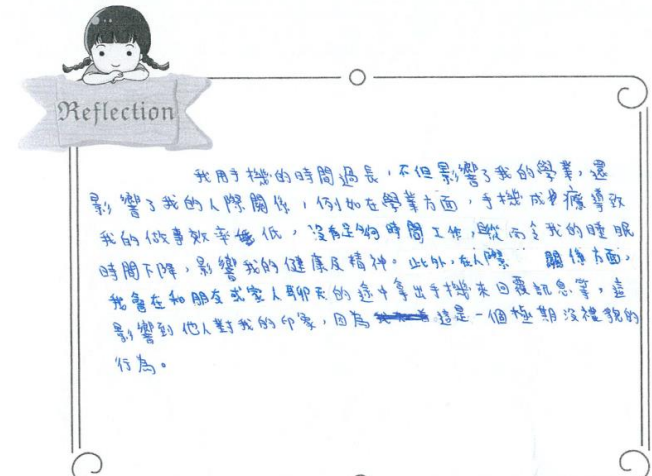 Reflection
我用手機的時間過長，不但影響了我的學業，還
影響了我的人際關係，例如在學業方面，手機成癮導致
我的做事效率低，沒有足夠時間工作，從而令我的睡眠
時間下降，影響我的健康及精神。此外，在人際 關係方面，
我會在和朋友或家人聊天的途中拿出手機來回覆訊息等，這
影響到他人對我的印象，因為這是一個極期沒禮貌的
行為。